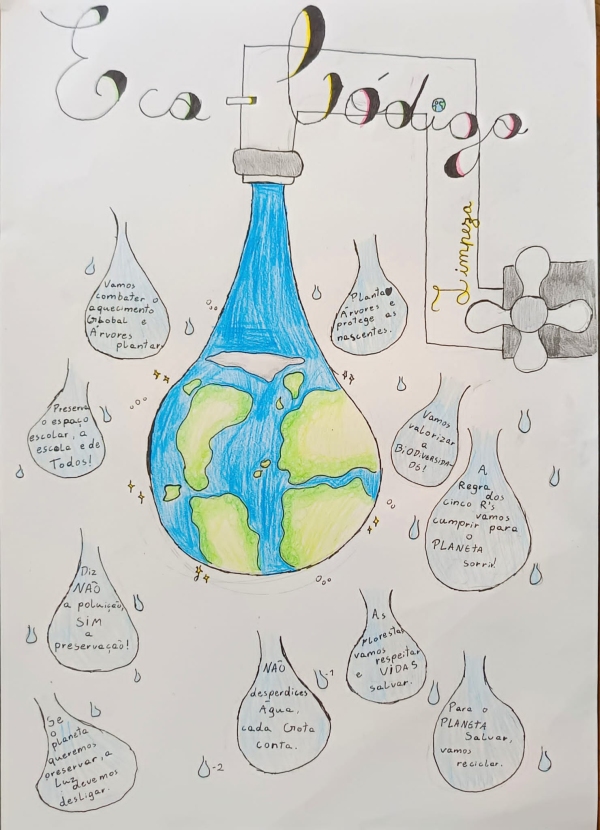 Eco-Código
Limpeza
Vamos
combater o
aquecimento
Global e
Árvores
plantar
Planta
Árvores e
protege as
nascentes.
Preserva
o espaço
escolar, a
escola é de
Todos!
Vamos
valorizar
a
BiODiVERSiDA-
DE!
A
Regra
dos
cinco R's
vamos
cumprir para
o
PLANETA
sorrir!
Diz
NÃO
a poluição,
SiM
a
preservação!
As
florestas
vamos
respeitar
e ViDAS
salvar.
NÃO
desperdices
Água,
cada Gota
conta.
-1
-2
Se
o
planeta
queremos
preservar, a
Luz
devemos
desligar.
Para o
PLANETA
Salvar,
vamos
reciclar.